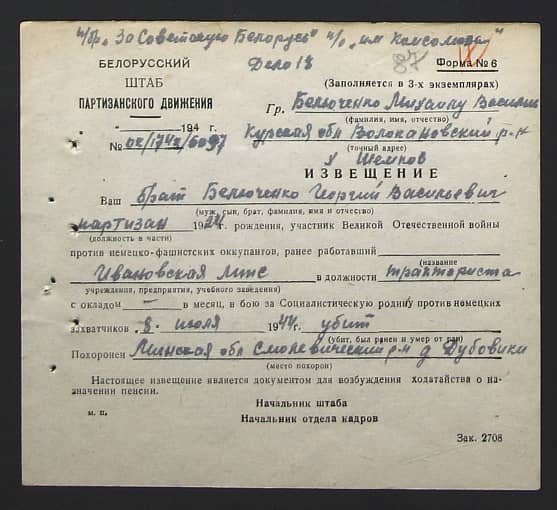 п/бр. „За Советскую Белорусь" п/о „им Комсомола"
Дело 18
87
БЕЛОРУССКИЙ
ШТАБ
ПАРТИЗАНСКОГО ДВИЖЕНИЯ
194 г.
№ 02/1742/6097
Форма № 6
(Заполняется в 3-х экземплярах)
Гр. Белюченко Михаилу Василь
(фамилия, имя, отчество)
Курская обл Волокановский р-н
(точный адрес)
х Шемпов
ИЗВЕЩЕНИЕ
Ваш брат Белюченко Георгий Васильевич
(муж, сын, брат, фамилия, имя и отчество)
партизан 1924 рождения, участник Великой Отечественной войны
(должность в части)
против немецко-фашистских оккупантов, ранее работавший
(название
Ивановская мтс в должности тракториста
учреждения, предприятия, учебного заведения)
с окладом — в месяц, в бою за Социалистическую родину против немецких
захватчиков 8. июля 1944 г. убит
(убит, был ранен и умер от ран)
Похоронен Минская обл Смолевический р-н д Дубовики
(место похорон)
Настоящее извещение является документом для возбуждения ходатайства о на-
значении пенсии.
Начальник штаба
м. п.
Начальник отдела кадров
Зак. 2708